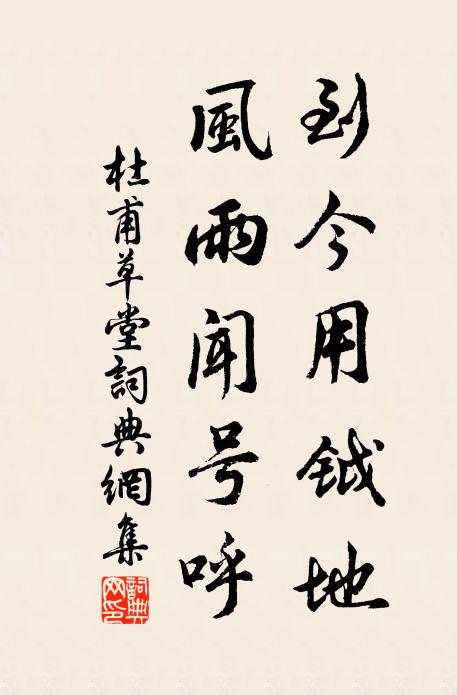 到今用钺地
風雨闻号呼
杜甫草堂詞典網集
詞典网印